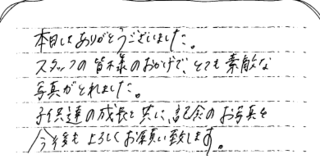 本日はありがとうございました。
スタッフの皆様のおかげで、とても素敵な
写真がとれました。
子供達の成長と共に、記念のお写真を
今後もよろしくお願い致します。